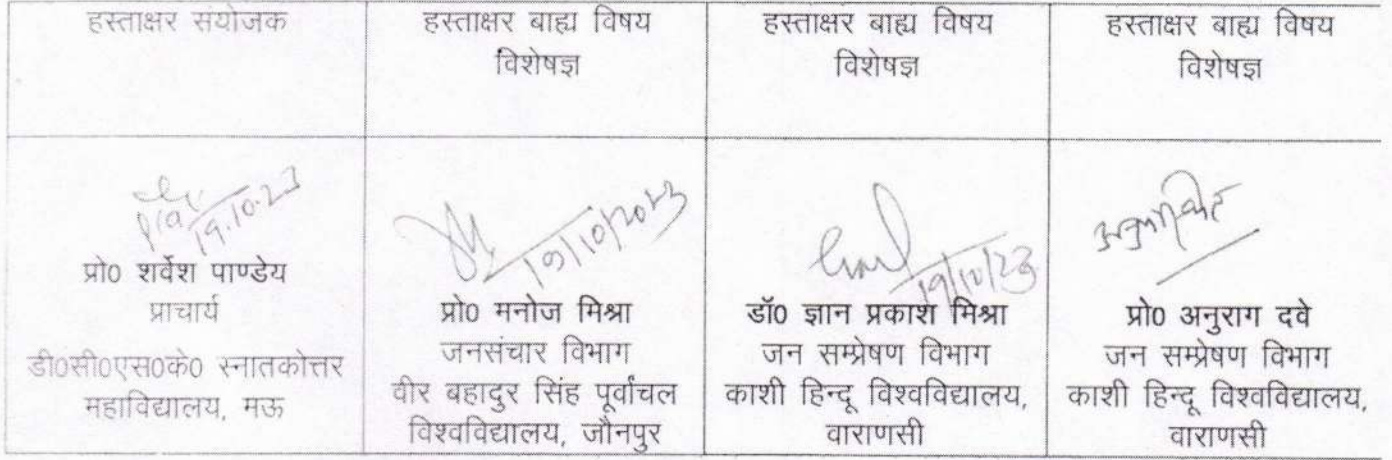 हस्ताक्षर संयोजक
हस्ताक्षर बाह्य विषय
विशेषज्ञ
हस्ताक्षर बाह्य विषय
विशेषज्ञ
हस्ताक्षर बाह्य विषय
विशेषज्ञ
19.10.23
प्रो0 शर्वेश पाण्डेय
प्राचार्य
डी0सी0एस0के0 स्नातकोत्तर
महाविद्यालय, मऊ
19/10/2023
प्रो0 मनोज मिश्रा
जनसंचार विभाग
वीर बहादुर सिंह पूर्वांचल
विश्वविद्यालय, जौनपुर
19/10/23
डॉ0 ज्ञान प्रकाश मिश्रा
जन सम्प्रेषण विभाग
काशी हिन्दू विश्वविद्यालय,
वाराणसी
अनुपस्थित
प्रो0 अनुराग दवे
जन सम्प्रेषण विभाग
काशी हिन्दू विश्वविद्यालय,
वाराणसी